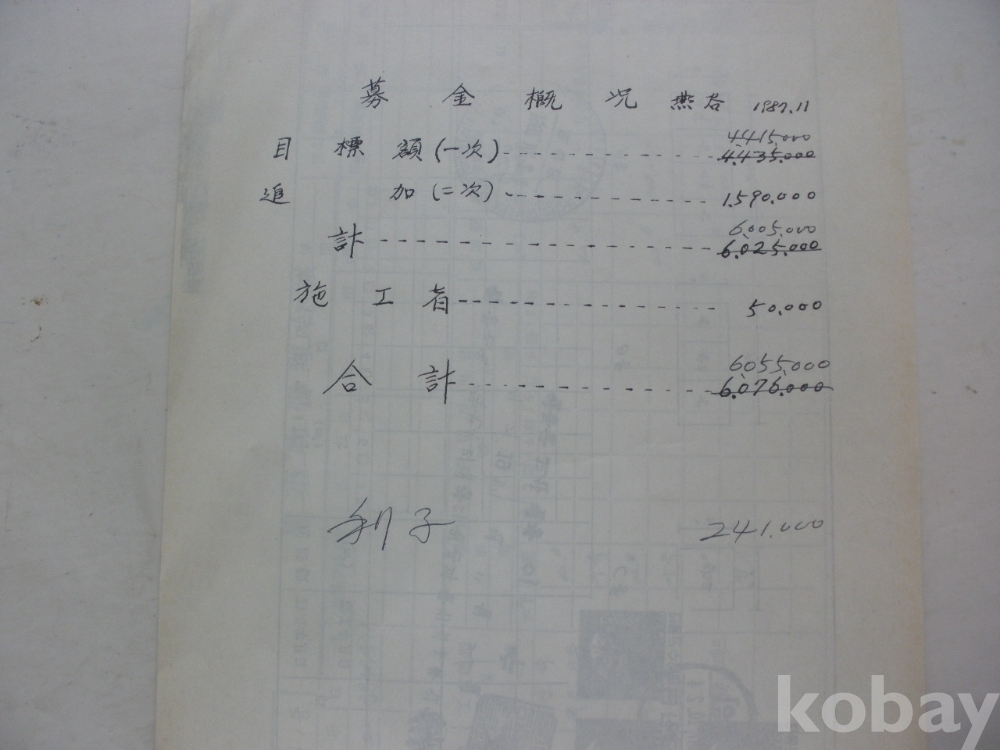 募金概況 燕谷 1987.11
4,415,000
目標額(一次) 4,435,000
追加(二次) 1,590,000
6,005,000
計 6,025,000
施工者 50,000
6,055,000
合計 6,076,000
利子 241,000
kobay